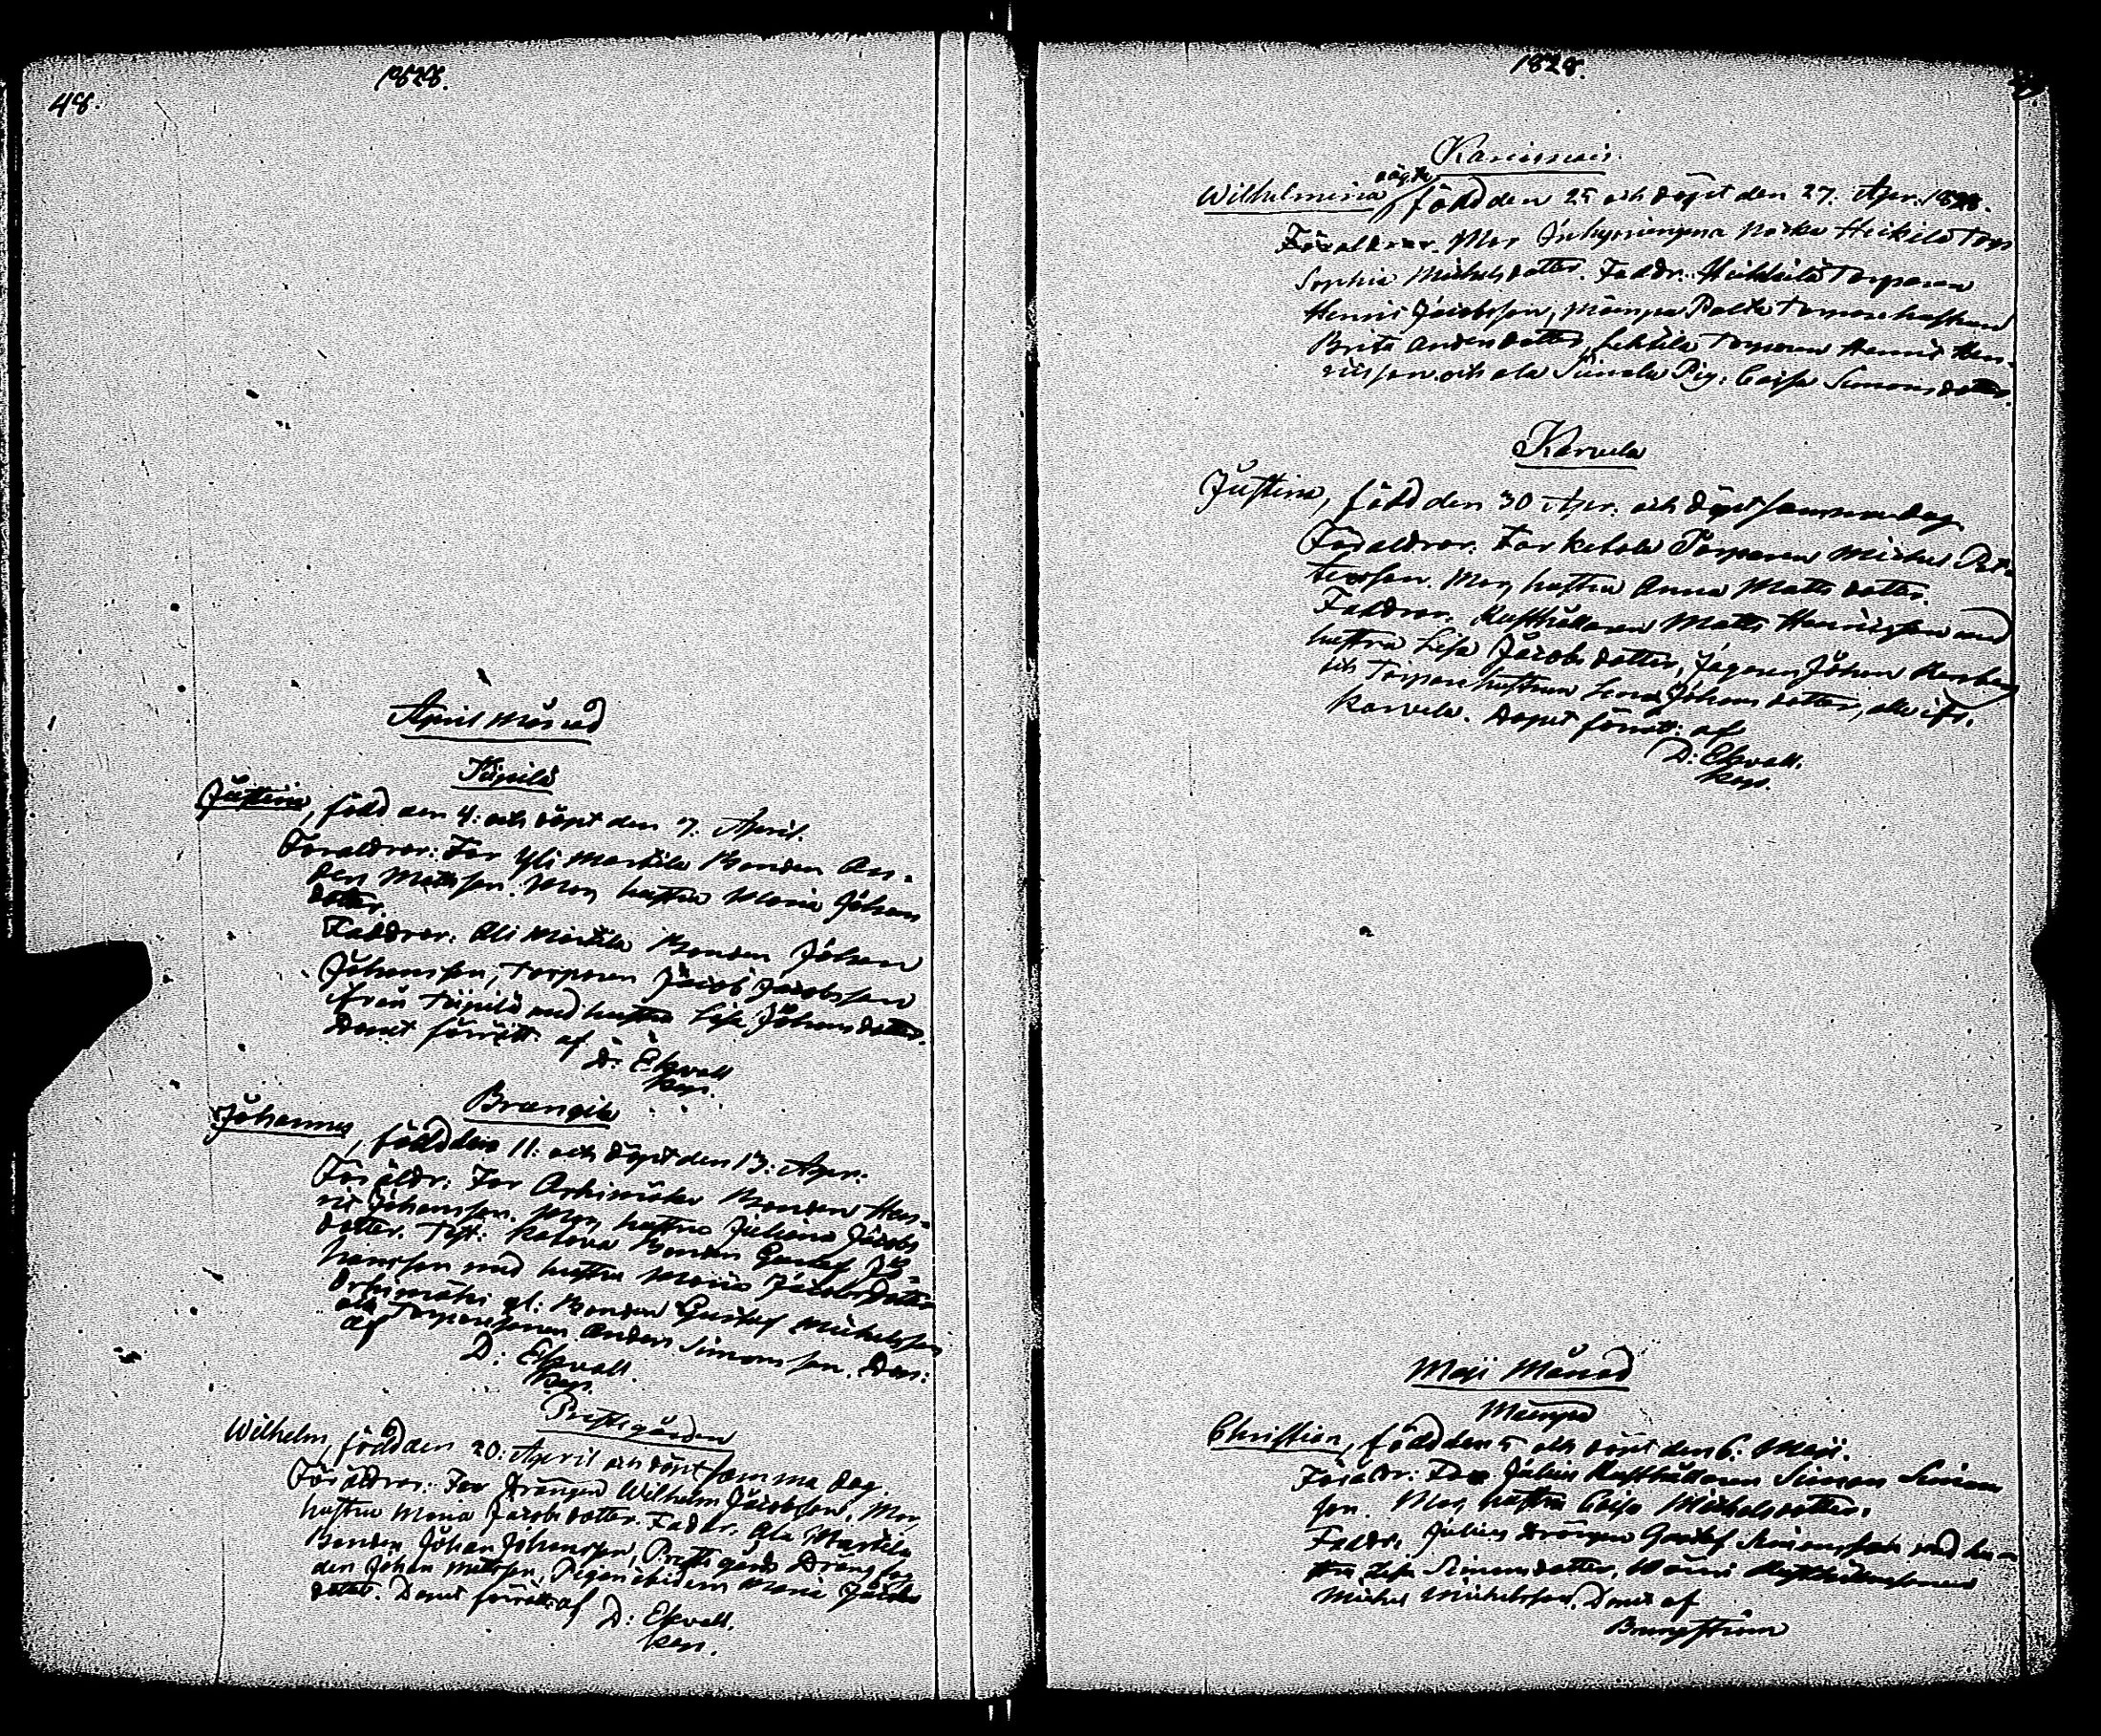 1828.
48.
April Månad
Tüpilä
Justina, född den 4: och döpt den 7. April.
Föräldrar: Far Yli Marttila Bonden An-
ders Matsson. Mor, hustru Maria Johans
dotter.
Faddrar: Ali Marttila Bonden Johan
Johansson, Torparen Jacob Jacobsson
ifrån Tüpilä med hustru Lisa Johansdotter.
Dopet förrätt: af D: Ekvall
Kap.
Brangila
Johannes, född den 11: och döpt den 13: Apr:
Föräldr: Far Orhimäki Bonden Hen-
ric Johansson. Mor, hustru Juliana Jacobs
dotter. Test: Bonden Gustaf Jo-
hansson med hustru Maria Jacobsdotter
Orhimäki gl: Bonden Gustaf Michelsson
och Torparsonen Anders Simonsson. Döp:
af D: Ekvall.
Kap.
Prestegården
Wilhelm, född den 20: April och döpt samma dag.
Föräldrar: Far Drängen Wilhelm Jacobsson, Mor,
hustru Maria Jacobsdotter. Faddr. Ala Marttila
Bonden Johan Johansson, Prestegårds Dräng
den Johan Mattsson, Pigan ibidem Maria Jacobs
dotter. Dopet förrätt: af D: Ekvall.
Kap.
1828.
Karismais.
Wilhelmina oägta, född den 25 och döpt den 27. Apr. 1828.
Föräldrar. Mor Inhysningena Heikilä Torp
Sophia Michelsdotter. Faddr. Heikkilä Torparen
Henric Jacobsson, Mämpä Torparehustrun
Brita Andersdotter, Lehtila Torparen Henric Hen-
ricsson och ala Simola Pig: Caisa Simonsdotter.
Karvela
Justina, född den 30 Apr. och döpt samma dag.
Föräldrar. Far Ketola Torparen Michel Pet-
tersson. Mor, hustru Anna Mattsdotter.
Faddrar. Rusthållaren Matts Henricsson med
hustru Lisa Jacobsdotter, Jägaren Johan
och Torparehustrun Lena Johansdotter, alla ifr.
Karvela. Dopet förrätt: af
D: Ekvall.
Kap.
Maji Månad
Mämpä
Christian, född den 5 och döpt den 6: Maji.
Föräldr: Far Julius Rusthållaren Simon Simons
son. Mor, hustru Caisa Michelsdotter.
Faddr. Julius Drängen Gustaf Simonsson med hu-
stru Lisa Simonsdotter, Rusthållaresonen
Michel Michelsson. Döpt af